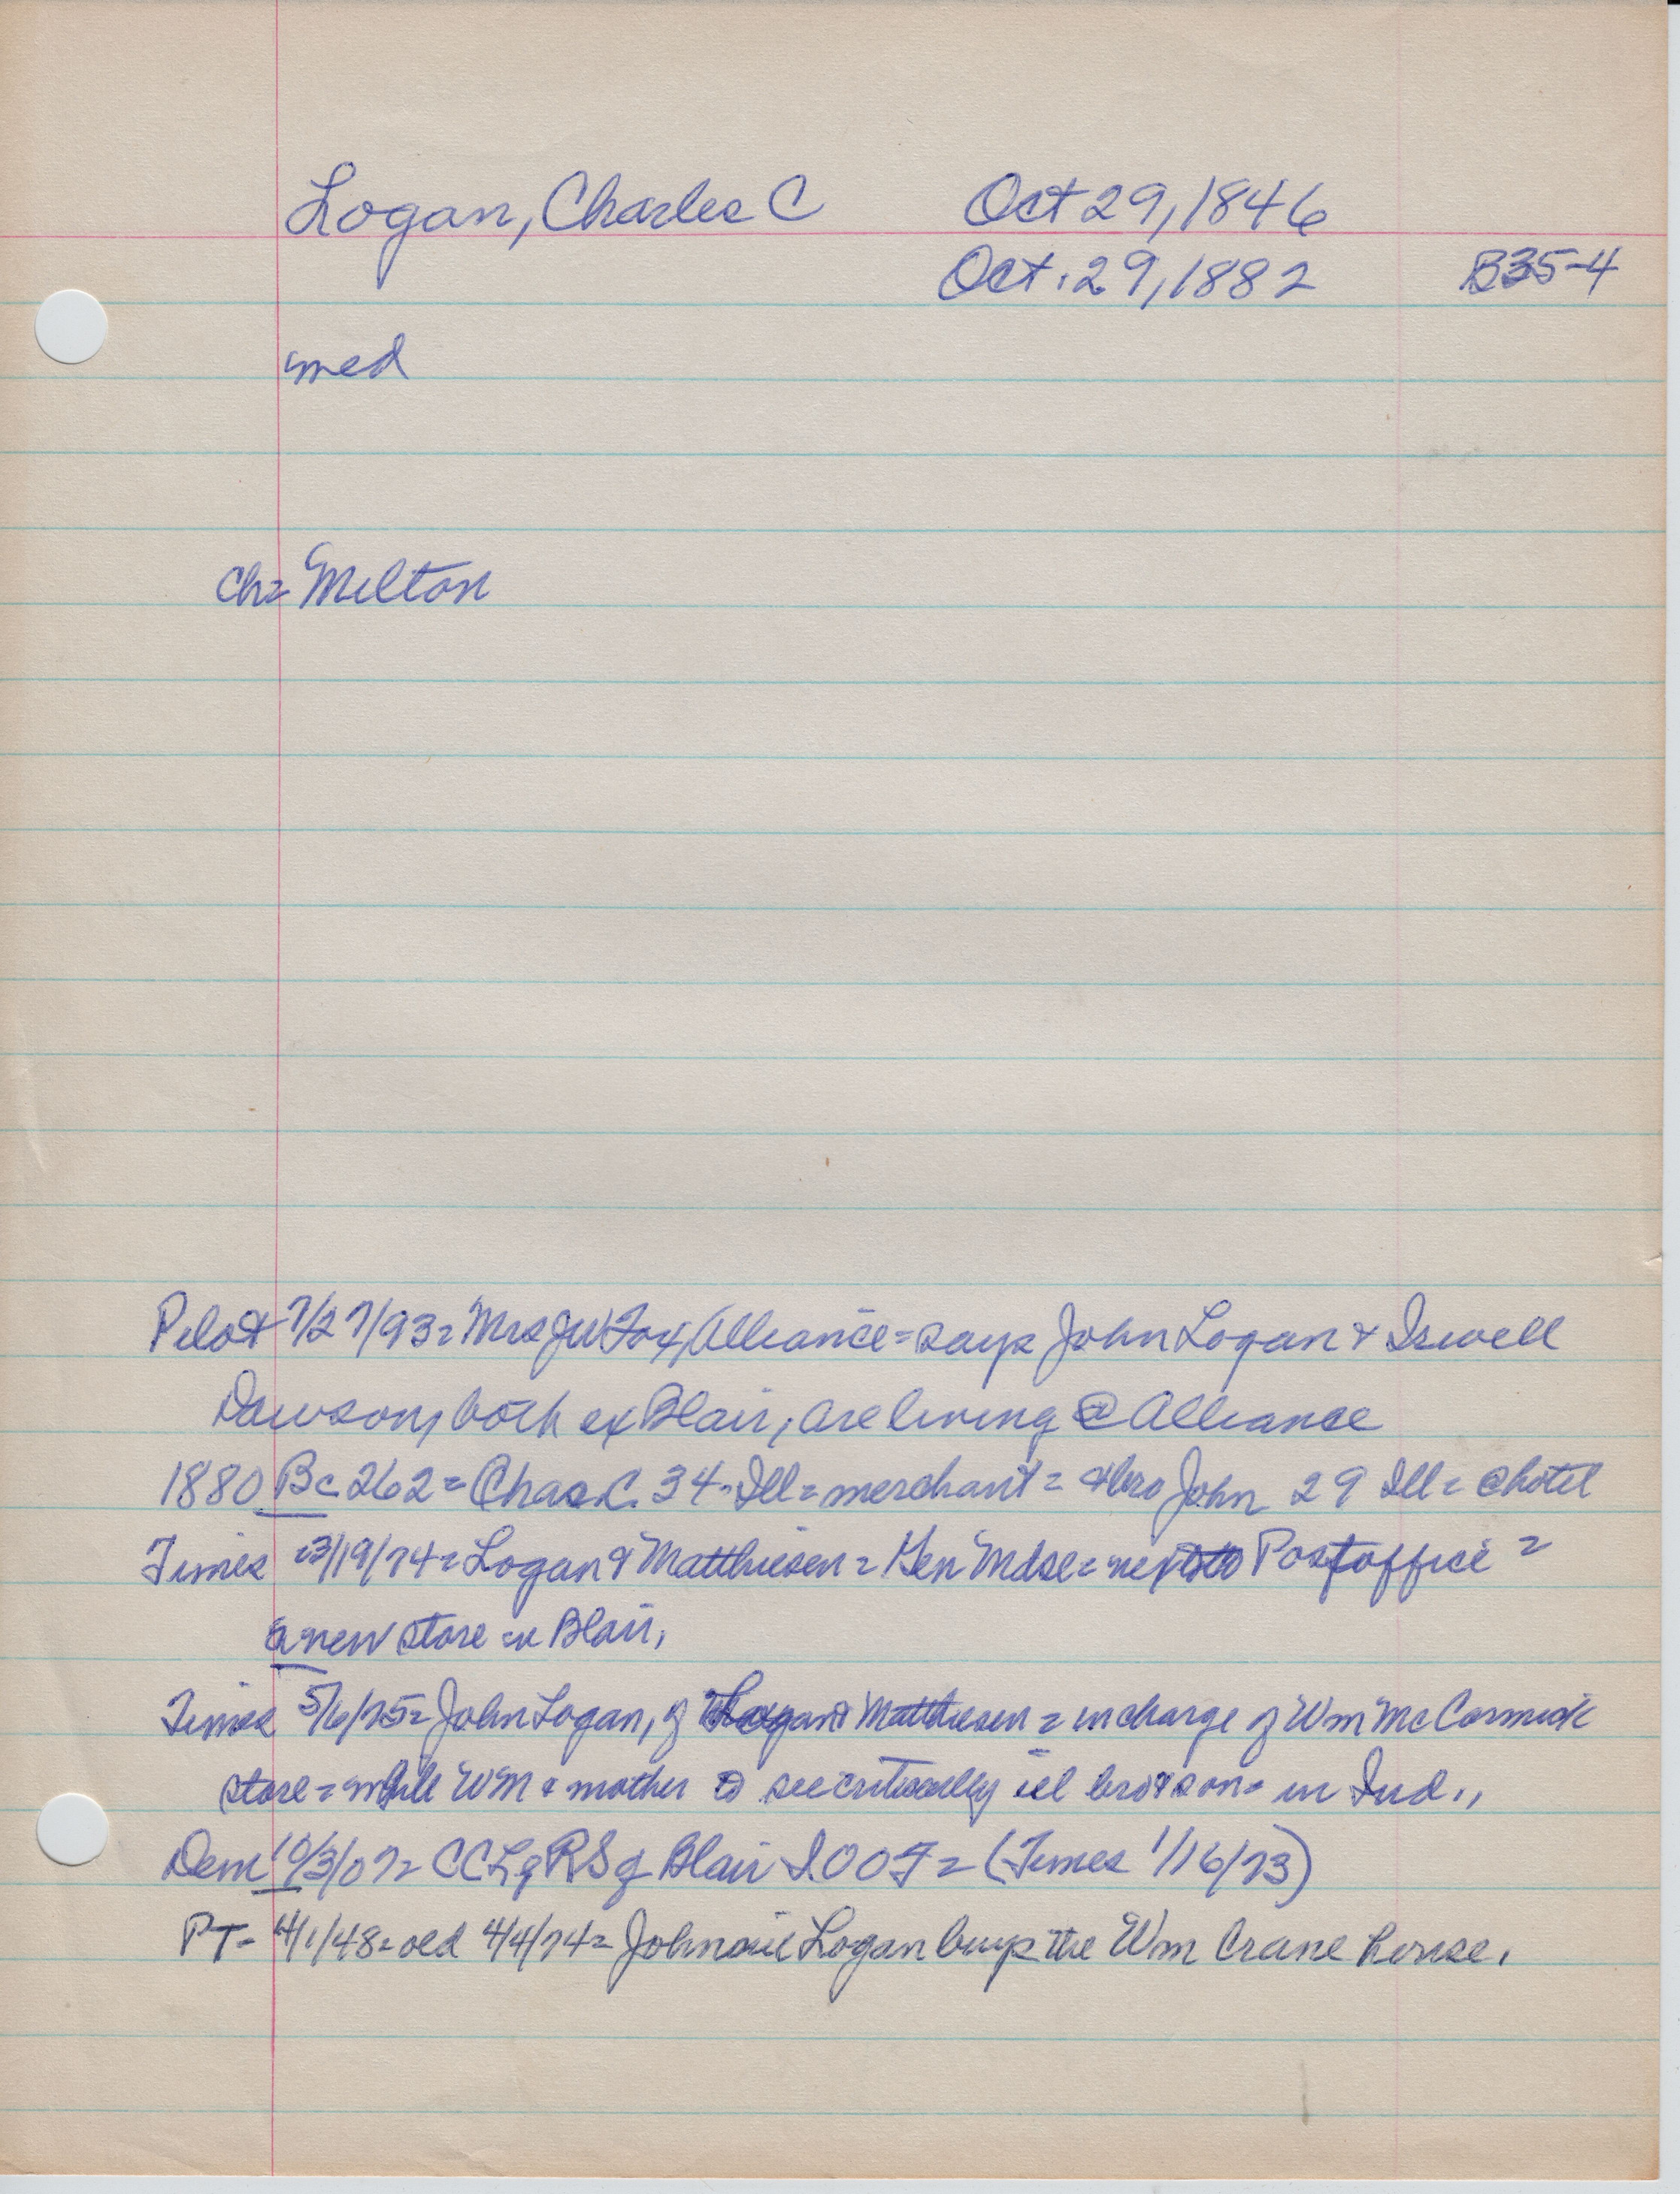 Logan, Charles C Oct 29, 1846
Oct. 29, 1882 B35-4
med
Ch= Milton
Pilot 7/27/93= Mrs JW Fox, Alliance= says John Logan & Iswell
Dawson, both ex Blair, are living @ Alliance
1880 Bc 262= Chas C. 34-Ill= merchant= & bro John 29 Ill= @ hotel
Times 3/19/74= Logan & Matthiesen= Gen Mdse= next to Postoffice=
a new store in Blair.
Times 5/6/75= John Logan, of Logan & Matthiesen= in charge of Wm McCormick
store= while WM & mother to see critically ill bro & son= in Ind.,
Dem 10/3/07= CCLg RS of Blair I.OOF= (Times 1/16/73)
PT- 4/1/48= old 4/4/74= Johnnie Logan buys the Wm Crane house.